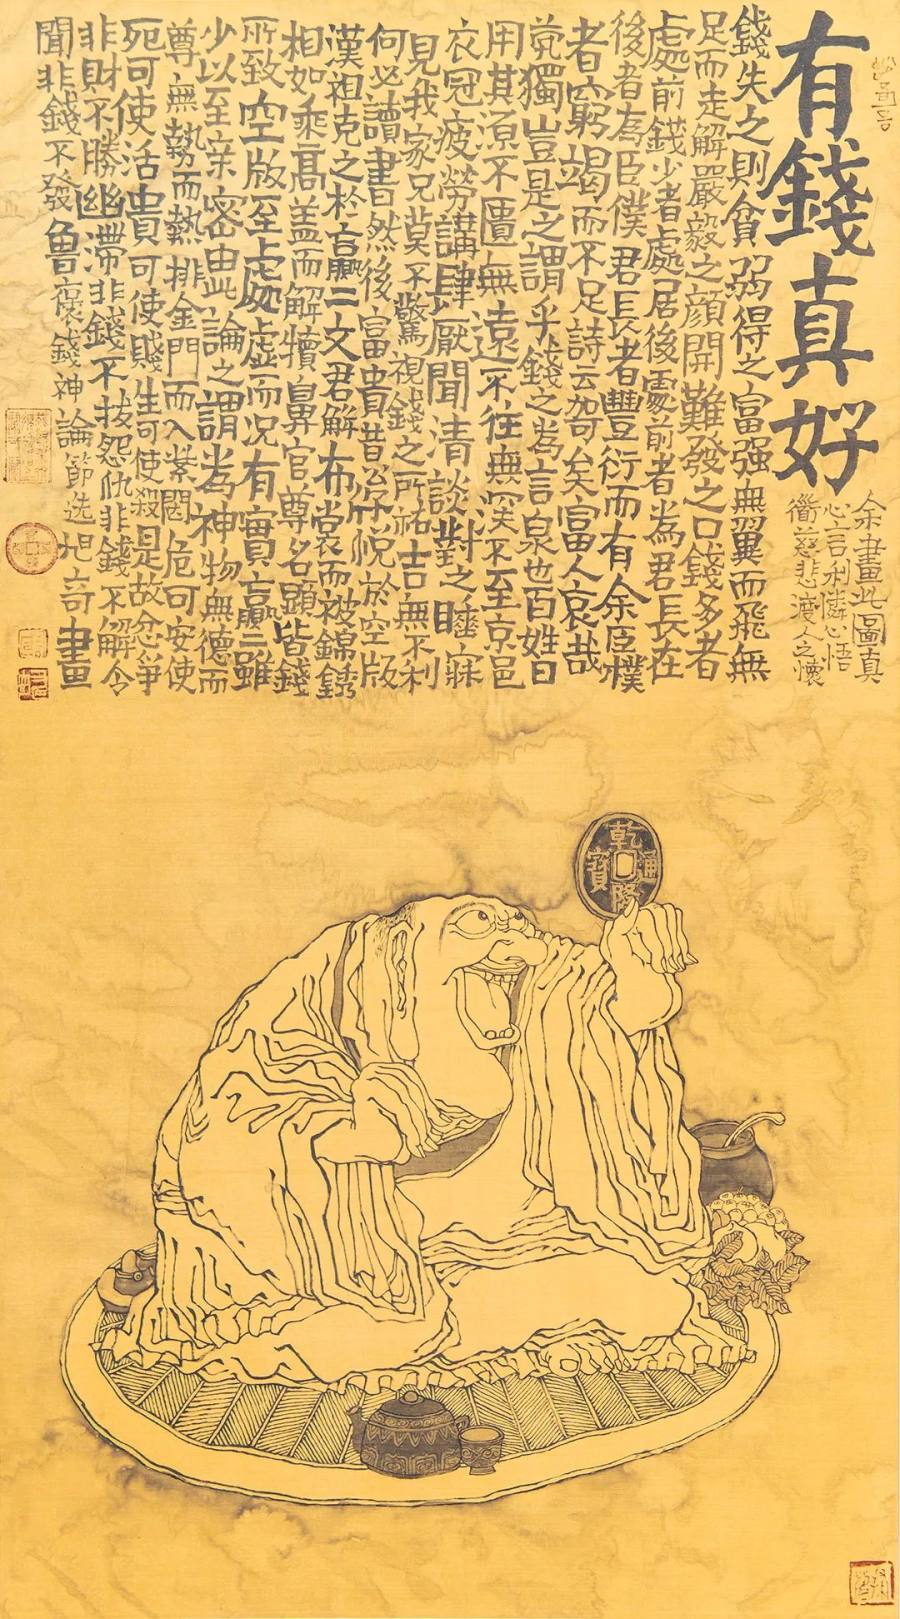 有錢真好
余畫此圖真
心言利憐心悟
衢慈悲渡人之懷
錢失之則貧弱得之富强無翼而飛無
足而走解嚴毅之顔開難發之口錢多者
處前錢少者處居後處前者為君長在
後者為臣僕君長者豐衍而有余臣樸
者窮竭而不足詩云哿矣富人哀哉
煢獨豈是之謂乎錢之為言泉也百姓日
用其源不匱無遠不往無深不至京邑
衣冠疲勞講肆厭聞清談對之睡寐
見我家兄莫不驚視錢之所祐吉無不利
何必讀書然後富貴昔忻悅於空版
漢祖克之於贏二文君解布裳而被錦銹
相如乘高盖而解犢鼻官尊名顯皆錢
所致空版至處虛而況有實贏二雖
少以至亲密由此論之謂為神物無德而
尊無勢而熱排金門而入紫闥危可安使
死可使活貴可使賤生可使殺是故忿爭
非財不勝幽滯非錢不拔怨仇非錢不解令
聞非錢不發魯褒錢神論節选旭奇畫
乾隆通寶